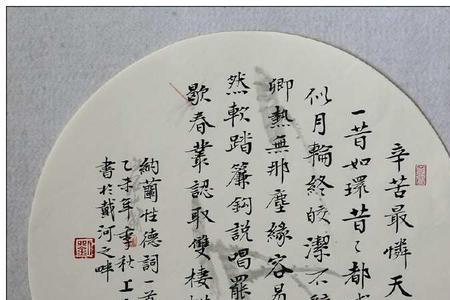 辛苦最憐天
一昔如環昔〻都
似月輪終皎潔不
卿熱無那塵緣容易
然軟踏簾鉤說唱罷
歇春叢認取雙棲
納蘭性德詞一首
乙未年季秋上
書於戴河之畔